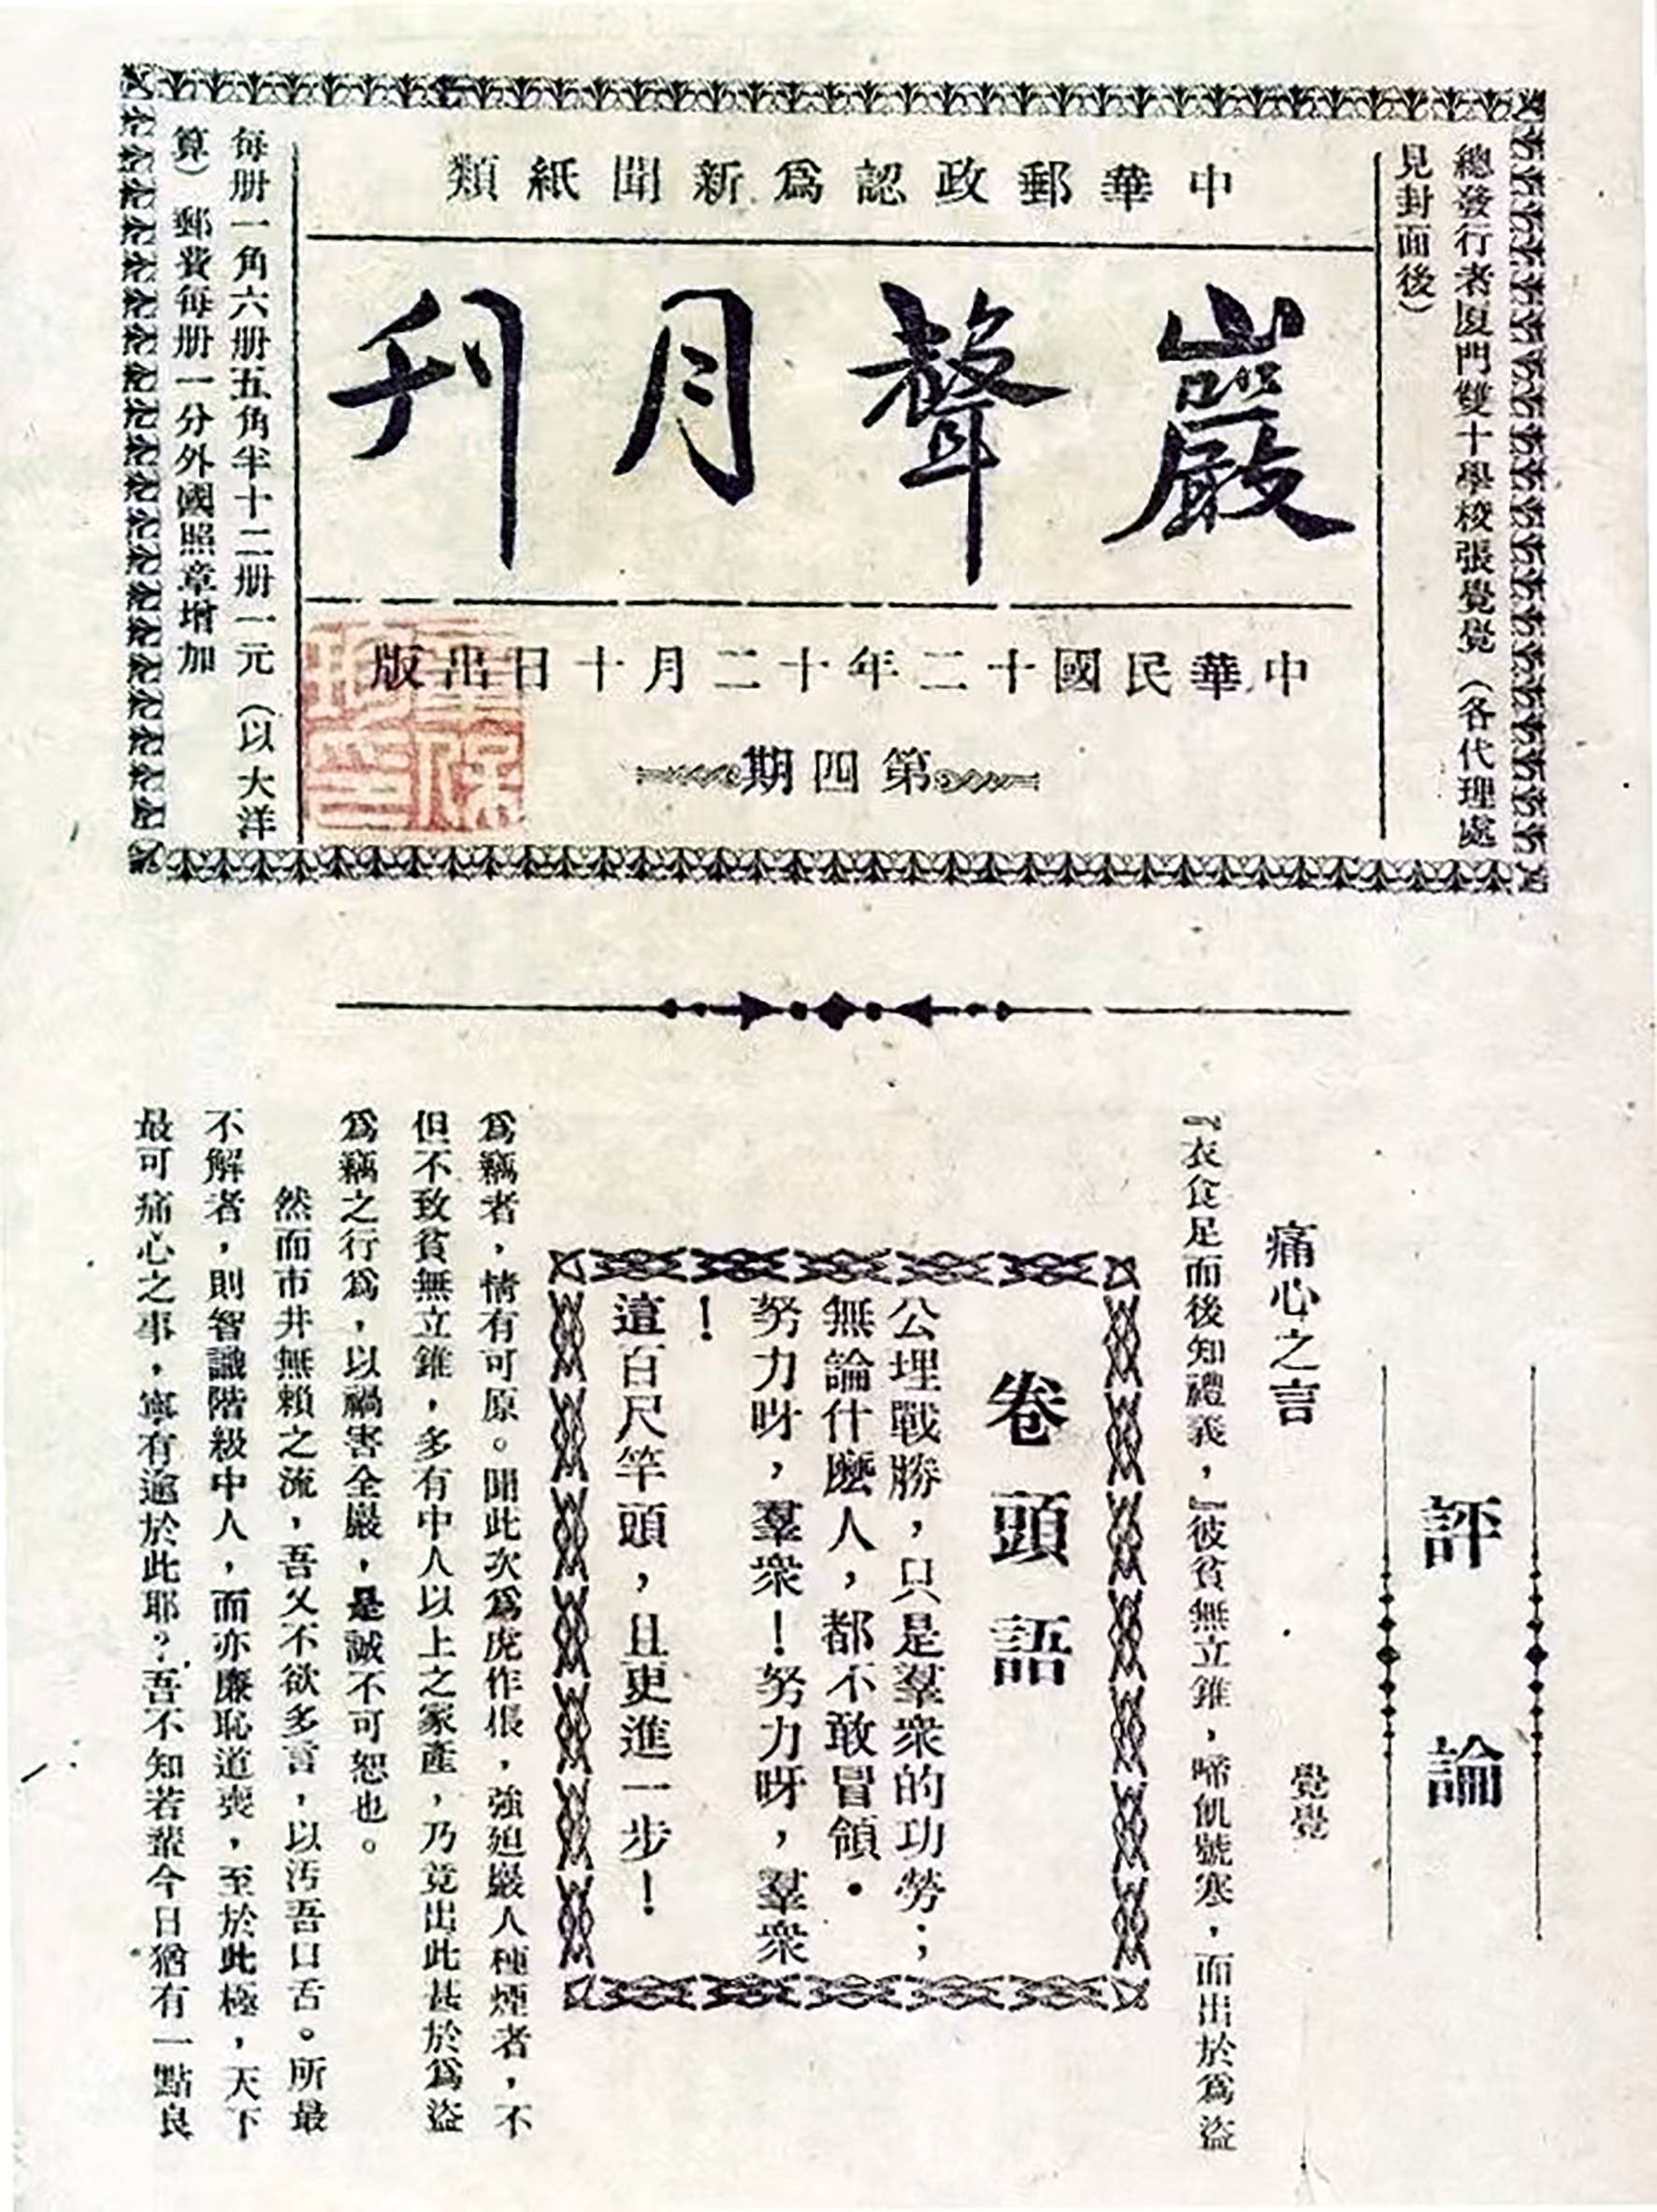 中華郵政認爲新聞紙類
巖聲月刊
中華民國十二年十二月十日出版
第四期
總發行者厦門雙十學校張覺覺（各代理處
見封面後）
每册一角六册五角半十二册一元（以大洋
算）郵費每册一分外國照章增加
評論
痛心之言 覺覺
『衣食足而後知禮義，』彼貧無立錐，啼飢號寒，而出於爲盜
卷頭語
公理戰勝，只是羣衆的功勞；
無論什麽人，都不敢冒領．
努力呀，羣衆！努力呀，羣衆
！
這百尺竿頭，且更進一步！
爲竊者，情有可原。聞此次爲虎作倀，強迫巖人種煙者，不
但不致貧無立錐，多有中人以上之家產，乃竟出此甚於爲盜
爲竊之行爲，以禍害全巖，是誠不可恕也。
然而市井無賴之流，吾又不欲多言，以汚吾口舌。所最
不解者，則智識階級中人，而亦廉恥道喪，至於此極，天下
最可痛心之事，寧有逾於此耶？吾不知若輩今日猶有一點良